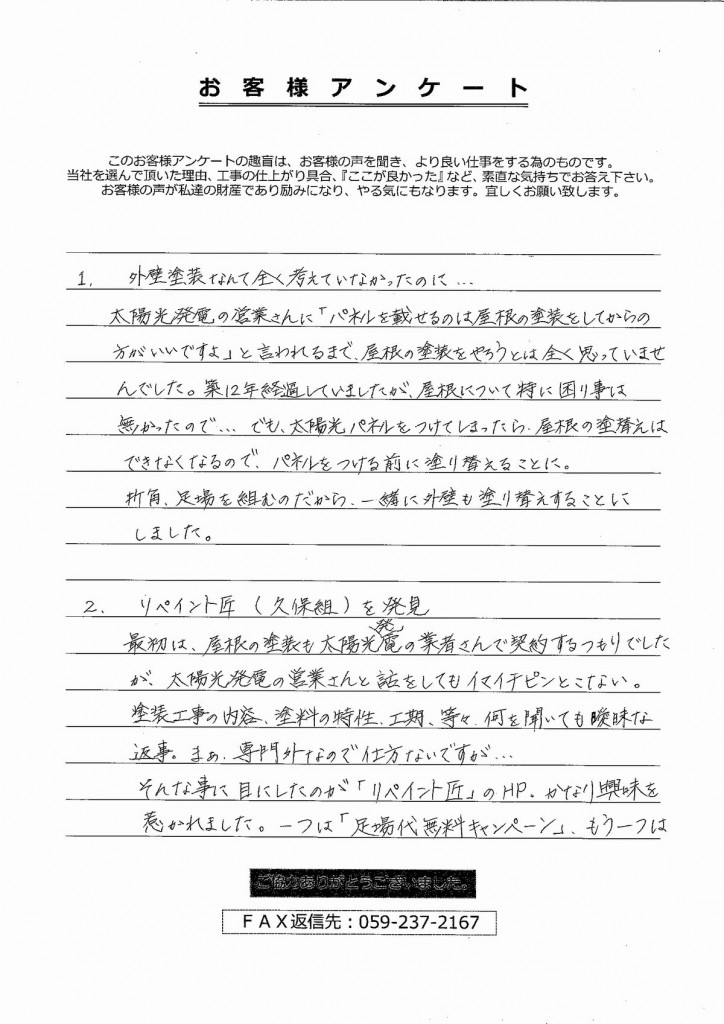 お客様アンケート
このお客様アンケートの趣旨は、お客様の声を聞き、より良い仕事をする為のものです。
当社を選んで頂いた理由、工事の仕上がり具合、『ここが良かった』など、素直な気持ちでお答え下さい。
お客様の声が私達の財産であり励みになり、やる気にもなります。宜しくお願い致します。
1. 外壁塗装なんて全く考えていなかったのに…
太陽光発電の営業さんに「パネルを載せるのは屋根の塗装をしてからの
方がいいですよ」と言われるまで、屋根の塗装をやろうとは全く思っていませ
んでした。築12年経過していましたが、屋根について特に困り事は
無かったので… でも、太陽光パネルをつけてしまったら、屋根の塗替えは
できなくなるので、パネルをつける前に塗り替えることに。
折角、足場を組むのだから、一緒に外壁も塗り替えすることに
しました。
2. リペイント匠(久保組)を発見
最初は、屋根の塗装も太陽光発電の業者さんで契約するつもりでした
が、太陽光発電の営業さんと話をしてもイマイチピンとこない。
塗装工事の内容、塗料の特性、工期、等々、何を聞いても曖昧な
返事。まぁ、専門外なので仕方ないですが…
そんな事に目にしたのが「リペイント匠」のHP。かなり興味を
惹かれました。一つは「足場代無料キャンペーン」、もう一つは
ご協力ありがとうございました。
FAX返信先：059-237-2167